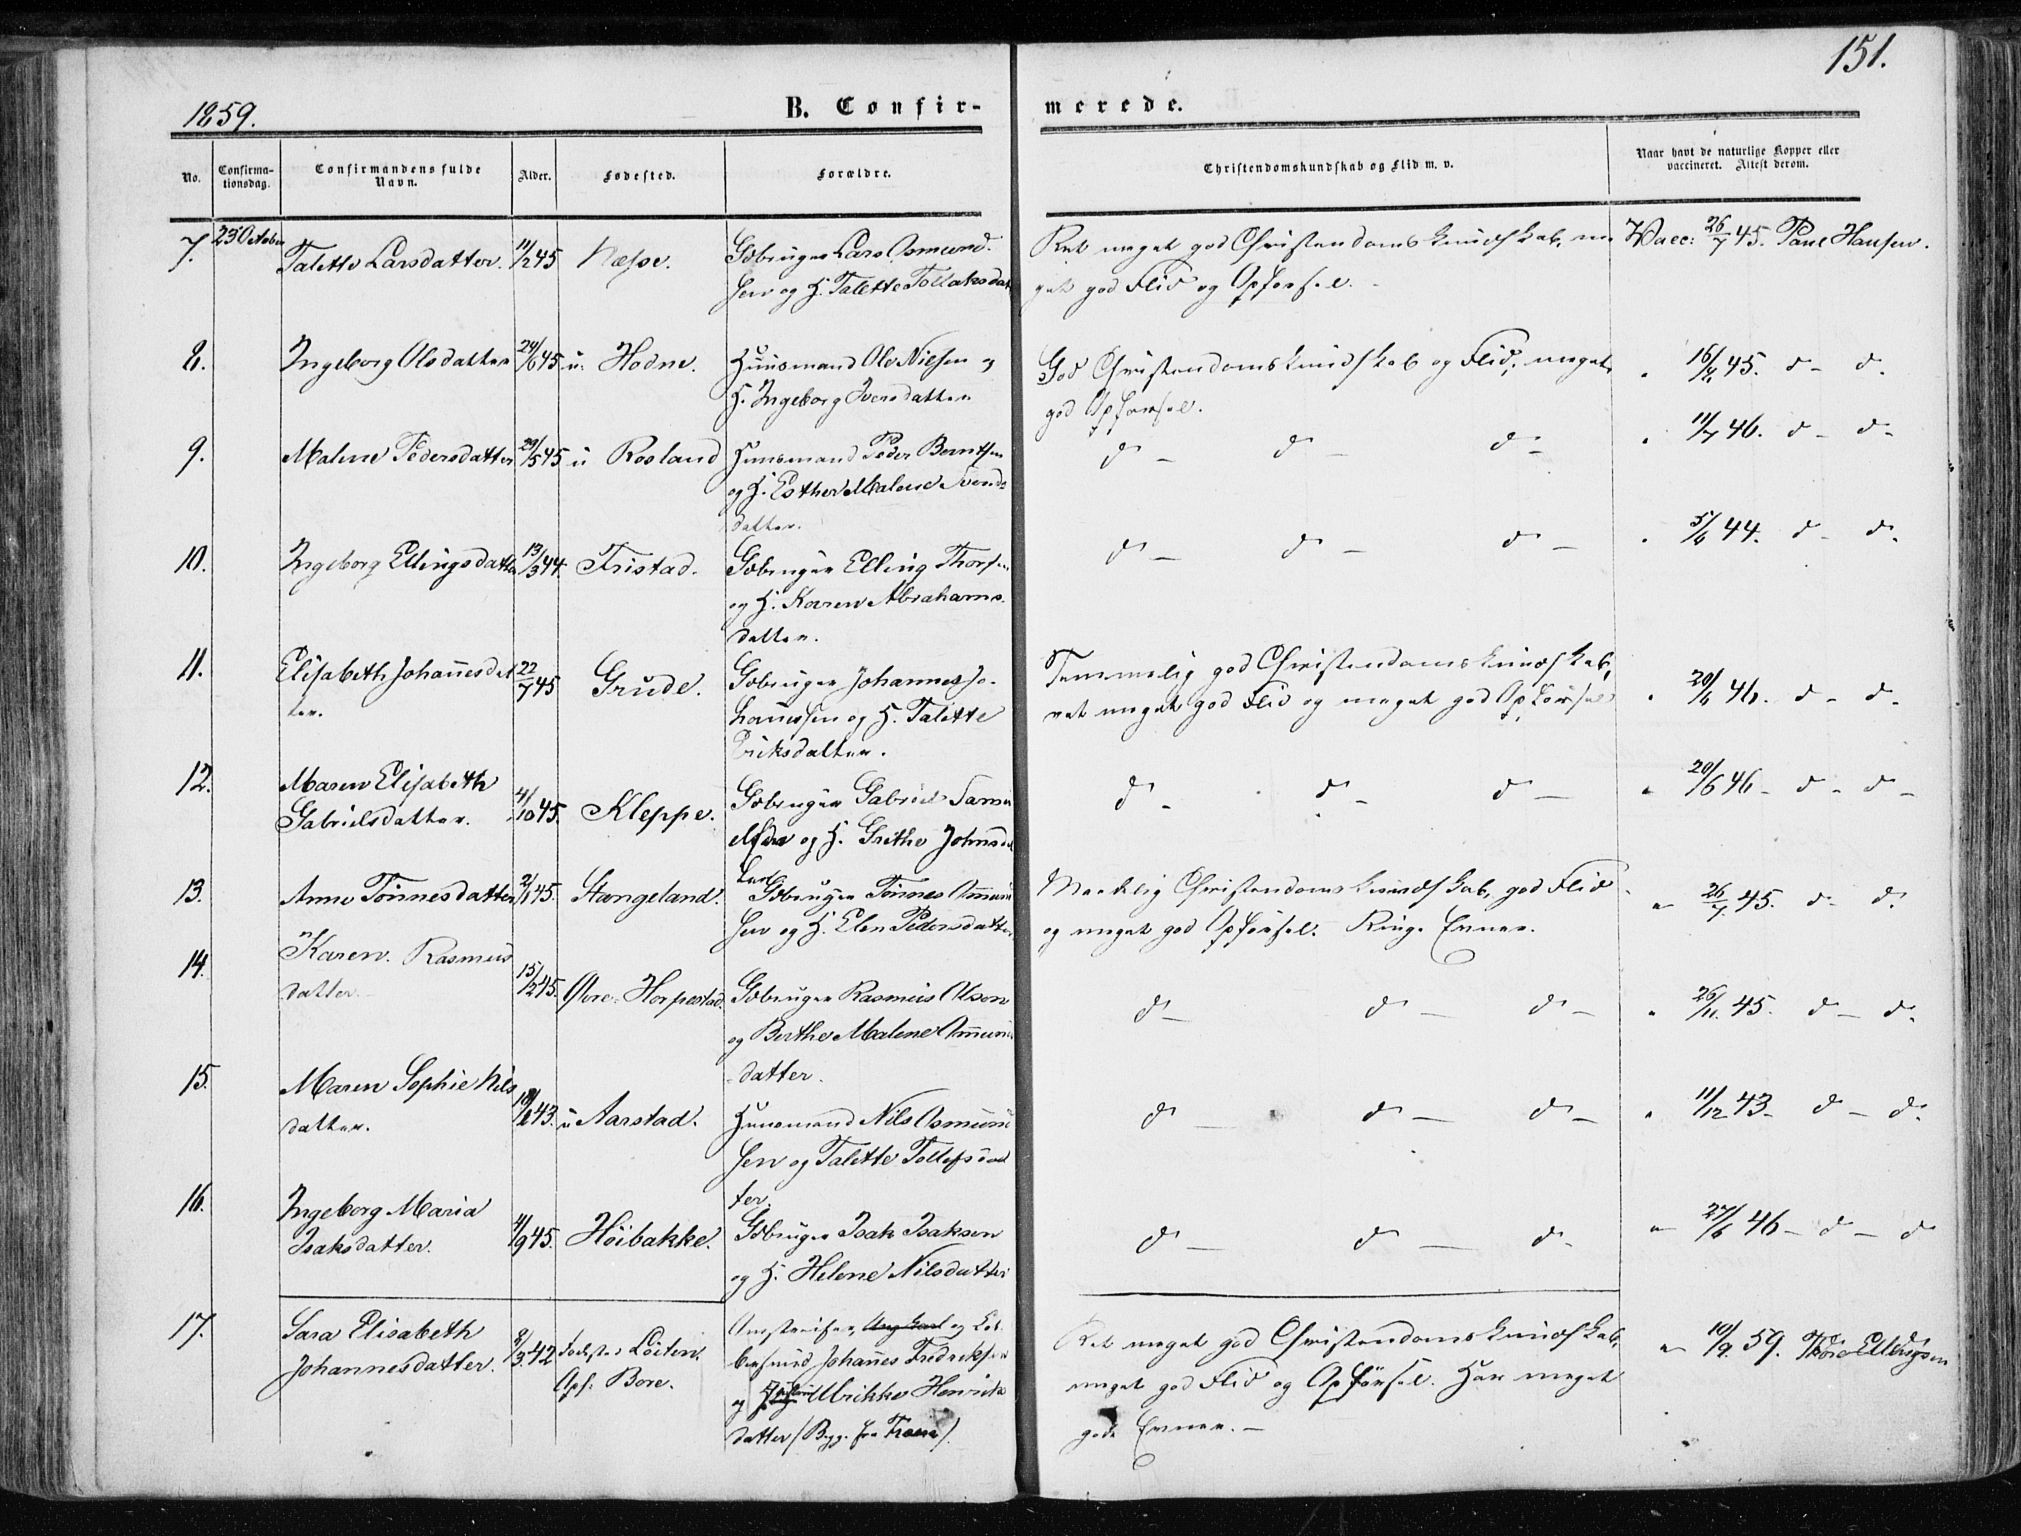 151.
1859.
B. Confir-
merede.
No.
Confirma-
tionsdag.
Confirmandens fulde
Navn.
Alder.
Fødested.
Forældre.
Christendomskundskab og Flid m. v.
Naar havt de naturlige Kopper eller
vaccineret. Attest derom.
7.
23 October
Talette Larsdatter.
11/12 45
Næsse.
Gbruger Lars Asmund-
sen og H. Talette Tollaksdat
Ret meget god Christendomskundskab, me
get god Flid og Opførsel.
Vacc: 26/7 45. Paul Hansen.
8.
Ingeborg Olsdatter
24/6 45
u. Hodne.
Huusmand Ole Nilsen og
H. Ingeborg Iversdatter
God Christendomskundskab og Flid, meget
god Opførsel.
45. d- d.
9.
Malene Pedersdatter
29/5 45
u Rosland
Huusmand Peder Berntsen
og H. Esther Malene Svends-
datter.
d - d - d -
11/7 46. d - d -
10.
Ingeborg Ellingsdatter
13/3 44.
Fristad.
Gbruger Elling Thors
og H. Karen Abrahams-
datter.
d - d - d -
5/6 44. d - d.
11.
Elisabeth Johannesdat
ter.
22/7 45
Grude.
Gbruger Johannes Jo-
hannessen og H. Talette
Eriksdatter.
Temmelig god Christendomskundskab,
ret meget god Flid og meget god Opførsel
20/6 46. d - d.
12.
Maren Elisabeth
Gabrielsdatter.
4/10 45.
Kleppe.
Gbruger Gabriel Samu
elsen og H. Grethe Johnsdat
ter
d - d - d -
20/6 46 - d - d -
13.
Anne Tønnesdatter
2/1 45.
Stangeland.
Gbruger Tønnes Amund
sen og H. Elen Pedersdatter
Maadelig Christendomskundskab, god Flid
og meget god Opførsel. Ringe Evner.
26/7 45. d - d.
14.
Karen Rasmus
datter.
15/12 45.
Øvre-Horpestad.
Gbruger Rasmus Olsen
og Berthe Malene Amunds
datter.
d - d - d -
26/11. 45. d - d.
15.
Maren Sophie Nils
datter.
43.
u Aarstad.
Huusmand Nils Asmund
sen og Talette Tollefsdat
ter
d - d - d -
11/12 43 - d - d.
16.
Ingeborg Maria
Isaksdatter.
4/9 45.
Høibakke.
Gbruger Isak Isaksen
og H. Helene Nilsdatter
d - d - d -
27/6 46 - d - d
17.
Sara Elisabeth
Johannesdatter.
2/3 42
Fødested Löiten.
Opf: Bore.
og Kob-
bersmed Johannes Fredriksen
og Ulrikke Henriks
datter
Ret meget god Christendomskundskab,
meget god Flid og Opførsel. Har meget
gode Evner. -
10/9. 59. Thore Ellingsen